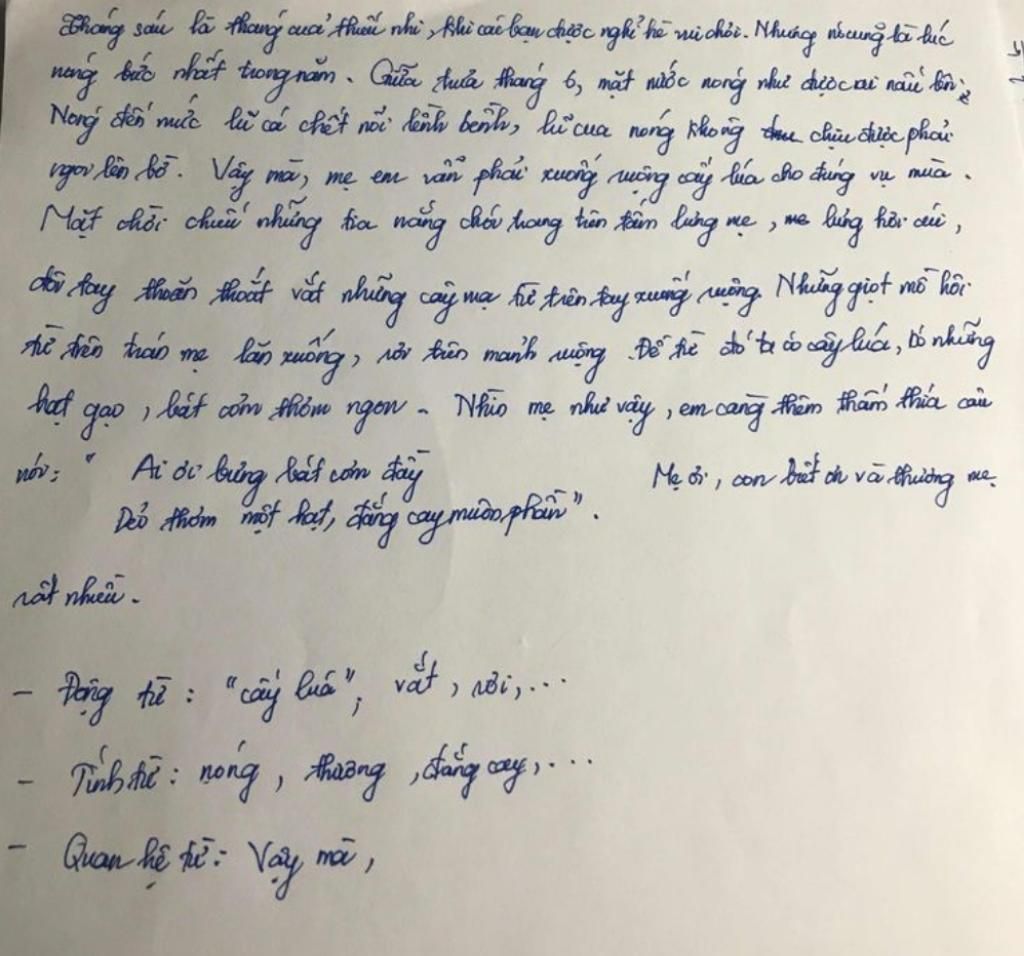 Tháng sáu là tháng của thiếu nhi, khi các bạn được nghỉ hè vui chơi. Nhưng nó cũng là lúc
nóng bức nhất trong năm. Giữa trưa tháng 6, mặt nước nóng như được ai nấu lên.
Nóng đến mức lũ cá chết nổi lềnh bềnh, lũ cua nóng không chịu được phải
ngoi lên bờ. Vậy mà, mẹ em vẫn phải xuống ruộng cấy lúa cho đúng vụ mùa.
Mặt chời chiếu những tia nắng chói trang trên tấm lưng mẹ, mẹ lưng hơi cúi,
đôi tay thoăn thoắt vắt những cây mạ từ trên tay xuống ruộng. Những giọt mồ hôi
từ trên trán mẹ lăn xuống, rơi trên mảnh ruộng. Để từ đó ta có cây lúa, có những
hạt gạo, bát cơm thơm ngon. Nhìn mẹ như vậy, em càng thêm thấm thía câu
nói: " Ai ơi bưng bát cơm đầy Mẹ ơi, con biết ơn và thương mẹ
Dẻo thơm một hạt, đắng cay muôn phần".
rất nhiều.
- Động từ: "cấy lúa", vắt, rơi,...
- Tính từ: nóng, thương, đắng cay,...
- Quan hệ từ: Vậy mà,